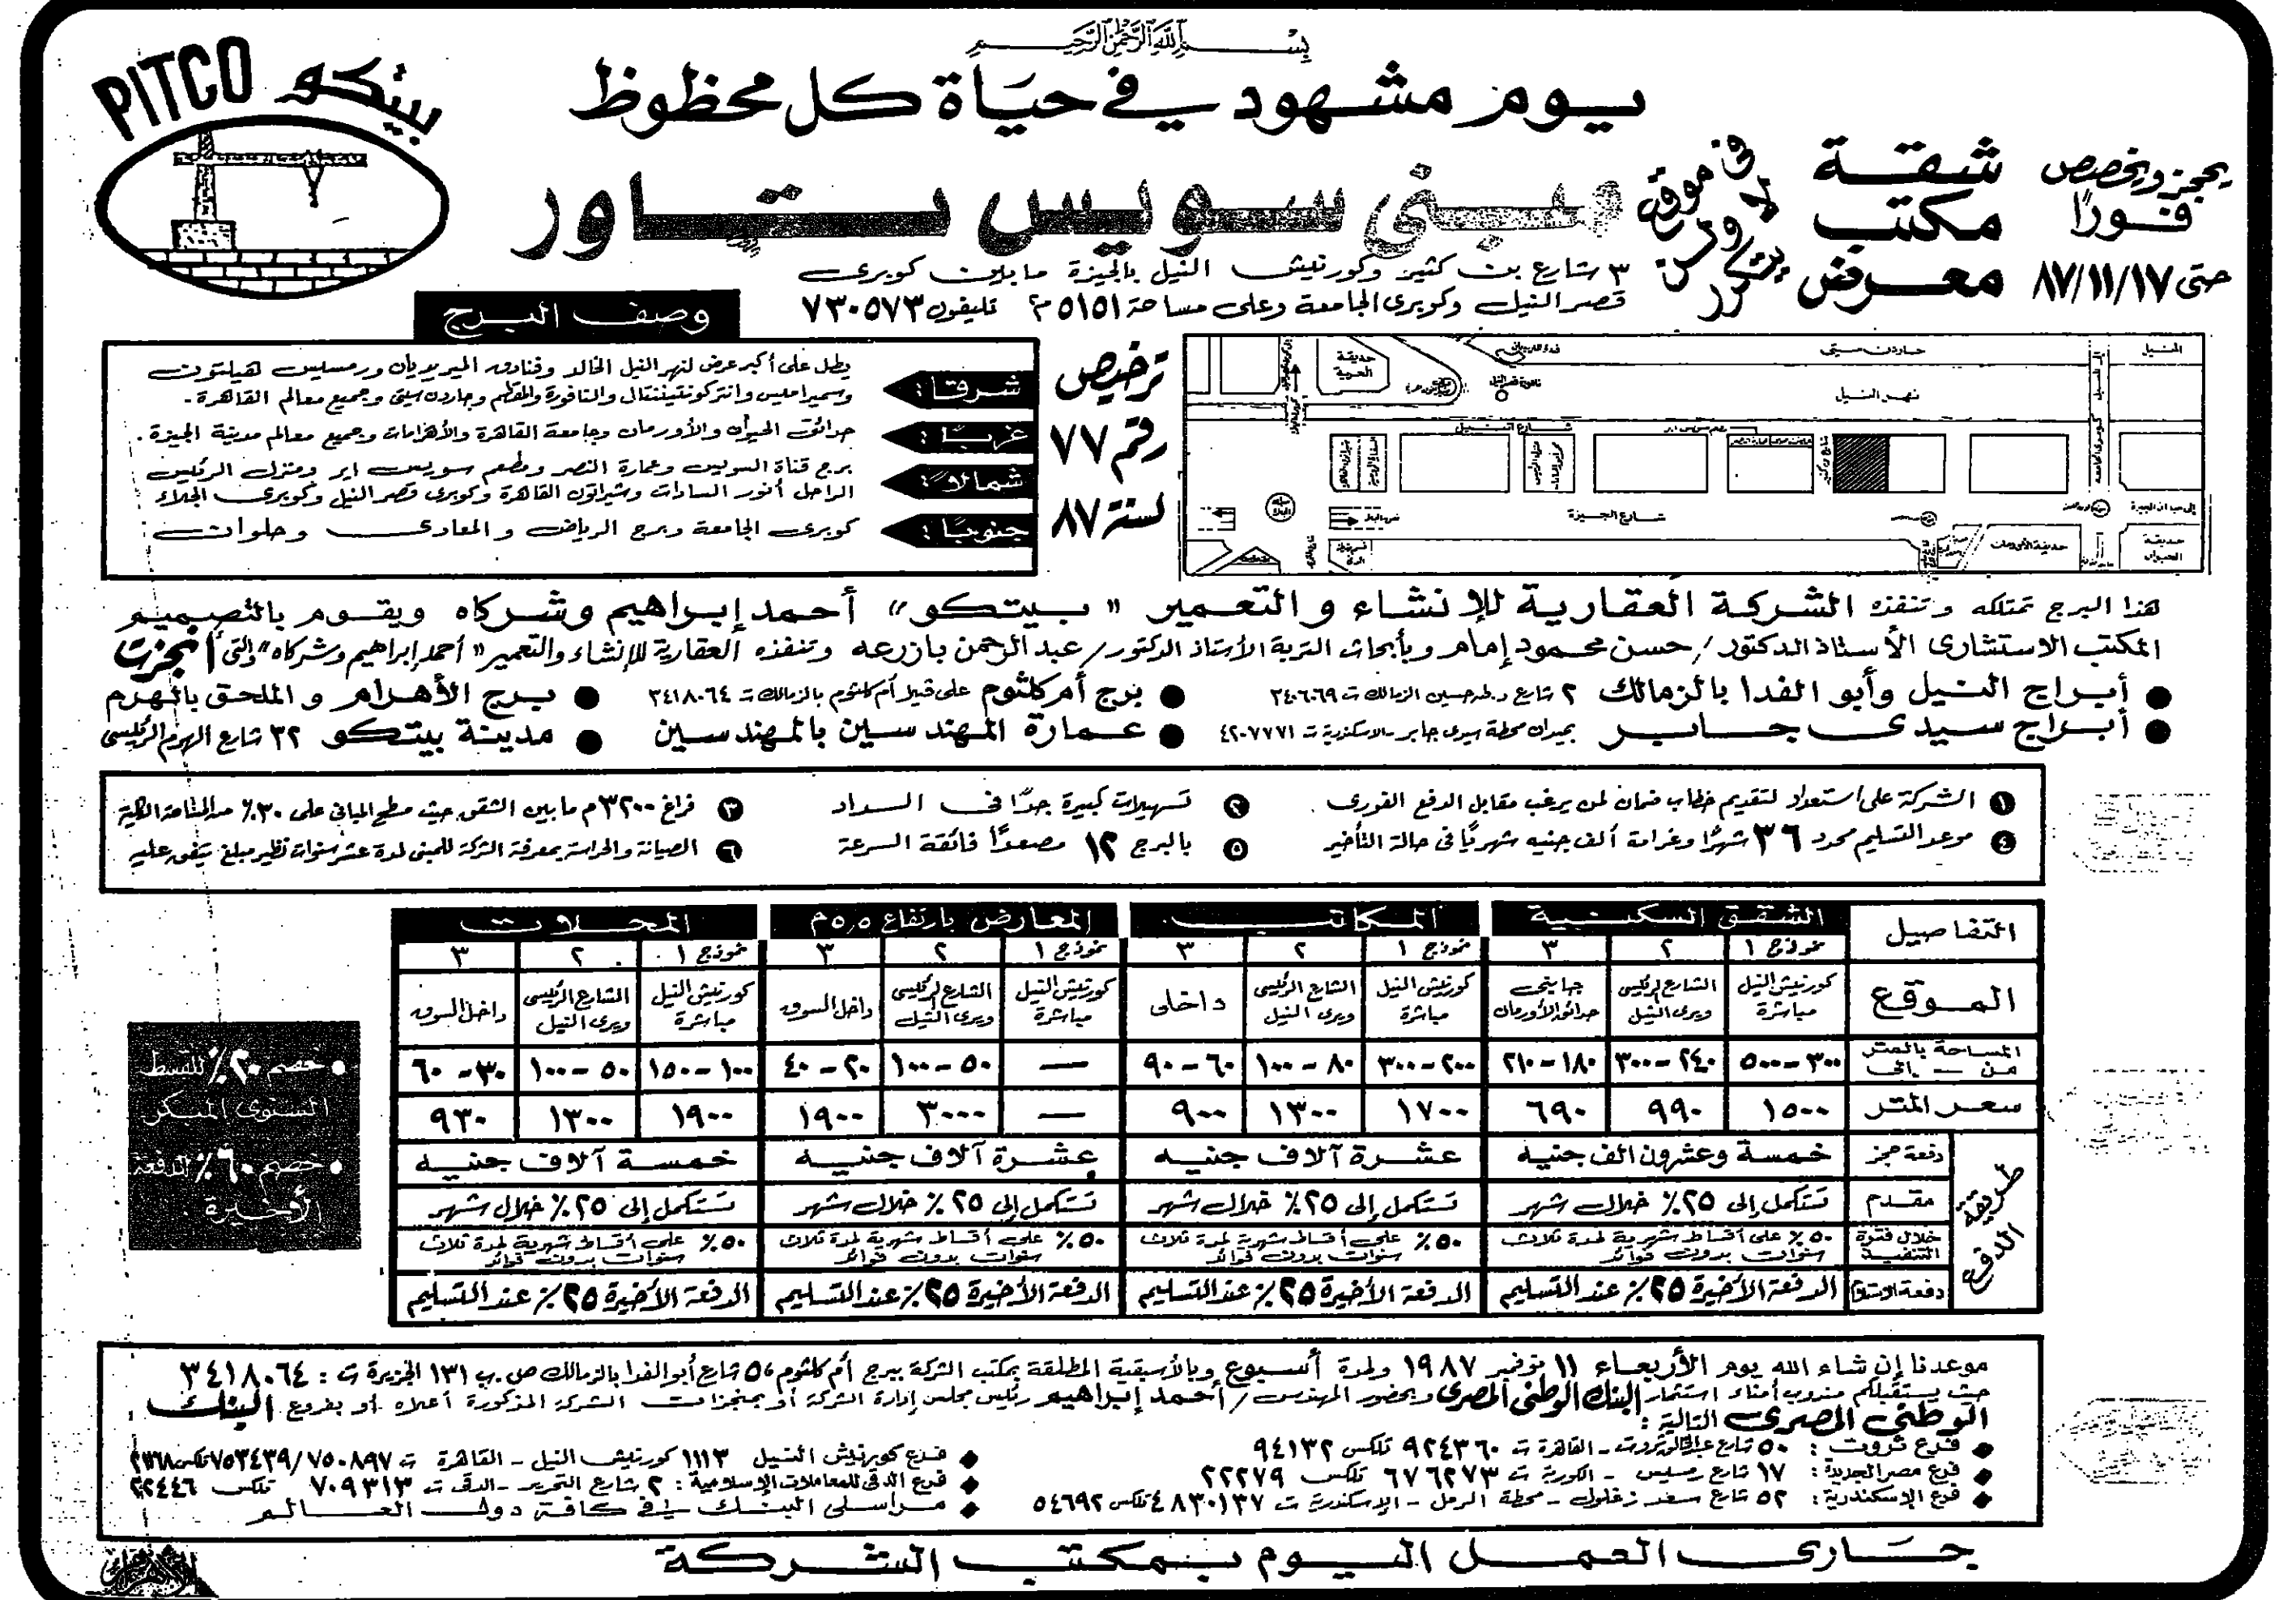 بسم الله الرحمن الرحيم
PITCO بيتكو
يوم مشهود في حياة كل محظوظ
يحجز ويخصص فورًا
حتى ٨٧/١١/١٧
شقة
مكتب
معرض
في موقع لا يتكرر
مبنى سويس تاور
٣ شارع بن كثير وكورنيش النيل بالجيزة ما بين كوبرى
قصر النيل وكوبرى الجامعة وعلى مساحة ٥١٥١ م٢ تليفون ٧٣٠٥٧٣
وصف البرج
ترخيص
رقم ٧٧
لسنة ٨٧
شرقًا: يطل على أكبر عرض لنهر النيل الخالد وفنادق الميريديان ورمسيس هيلتون
وسميراميس وانتركونتيننتال والنافورة والمقطم وجاردن سيتى وجميع معالم القاهرة.
غربًا: حدائق الحيوان والأورمان وجامعة القاهرة والأهرامات وجميع معالم مدينة الجيزة.
شمالًا: برج قناة السويس وعمارة النصر ومطعم سويس اير ومنزل الرئيس
الراحل أنور السادات وشيراتون القاهرة وكوبرى قصر النيل وكوبرى الجلاء
جنوبًا: كوبرى الجامعة وبرج الرياض والمعادى وحلوان
المنيل
جاردن سيتى
حديقة الحرية
نهر النيل
كوبرى الجامعة
شارع النيل
شارع الجيزة
إلى ميدان الجيزة
حديقة الحيوان
حديقة الأورمان
هذا البرج تمتلكه وتنفذه الشركة العقارية للإنشاء والتعمير "بيتكو" أحمد إبراهيم وشركاه ويقوم بالتصميم
المكتب الاستشارى الأستاذ الدكتور/ حسن محمود إمام وبأبحاث التربة الأستاذ الدكتور/ عبد الرحمن بازرعه وتنفذه العقارية للإنشاء والتعمير "أحمد إبراهيم وشركاه" والتى أنجزت
● أبراج النيل وأبو الفدا بالزمالك ٢ شارع د. طه حسين الزمالك ت ٣٤٠٦٠٦٩ ● برج أم كلثوم على فيلا أم كلثوم بالزمالك ت ٣٤١٨٠٦٤ ● برج الأهرام والملحق بالهرم
● أبراج سيدى جابر بميدان محطة سيدى جابر - الاسكندرية ت ٤٢٠٧٧٧١ ● عمارة المهندسين بالمهندسين ● مدينة بيتكو ٣٢ شارع الهرم الرئيسى
١ الشركة على استعداد لتقديم خطاب ضمان لمن يرغب مقابل الدفع الفورى. ٢ تسهيلات كبيرة جدًا فى السداد ٣ فراغ ٣٢٠٠ م ما بين الشقق حيث مسطح المبانى على ٣٠٪ من المساحة الكلية
٤ موعد التسليم محدد ٣٦ شهرًا وغرامة ألف جنيه شهريًا فى حالة التأخير ٥ بالبرج ١٢ مصعدًا فائقة السرعة ٦ الصيانة والحراسة بمعرفة الشركة للمبنى لمدة عشر سنوات نظير مبلغ يتفق عليه
التفاصيل | الشقق السكنية | المكاتب | المعارض بارتفاع ٥,٥ م | المحلات
نموذج ١ | ٢ | ٣ | نموذج ١ | ٢ | ٣ | نموذج ١ | ٢ | ٣ | نموذج ١ | ٢ | ٣
الموقع | كورنيش النيل مباشرة | الشارع الرئيسى ويرى النيل | جانبى حدائق الأورمان | كورنيش النيل مباشرة | الشارع الرئيسى ويرى النيل | داخلى | كورنيش النيل مباشرة | الشارع الرئيسى ويرى النيل | داخل السوق | كورنيش النيل مباشرة | الشارع الرئيسى ويرى النيل | داخل السوق
المساحة بالمتر من - إلى | ٣٠٠-٥٠٠ | ٢٤٠-٣٠٠ | ١٨٠-٢١٠ | ٢٠٠-٣٠٠ | ٨٠-١٠٠ | ٦٠-٩٠ | — | ٥٠-١٠٠ | ٢٠-٤٠ | ١٠٠-١٥٠ | ٥٠-١٠٠ | ٣٠-٦٠
سعر المتر | ١٥٠٠ | ٩٩٠ | ٦٩٠ | ١٧٠٠ | ١٣٠٠ | ٩٠٠ | — | ٣٠٠٠ | ١٩٠٠ | ١٩٠٠ | ١٣٠٠ | ٩٣٠
طريقة الدفع
دفعة حجز | خمسة وعشرون الف جنيه | عشرة آلاف جنيه | عشرة آلاف جنيه | خمسة آلاف جنيه
مقدم | تستكمل إلى ٢٥٪ خلال شهر | تستكمل إلى ٢٥٪ خلال شهر | تستكمل إلى ٢٥٪ خلال شهر | تستكمل إلى ٢٥٪ خلال شهر
خلال فترة التنفيذ | ٥٠٪ على أقساط شهرية لمدة ثلاث سنوات بدون فوائد | ٥٠٪ على أقساط شهرية لمدة ثلاث سنوات بدون فوائد | ٥٠٪ على أقساط شهرية لمدة ثلاث سنوات بدون فوائد | ٥٠٪ على أقساط شهرية لمدة ثلاث سنوات بدون فوائد
دفعة الاستلام | الدفعة الأخيرة ٢٥٪ عند التسليم | الدفعة الأخيرة ٢٥٪ عند التسليم | الدفعة الأخيرة ٢٥٪ عند التسليم | الدفعة الأخيرة ٢٥٪ عند التسليم
• خصم ٢٠٪ للقسط
السنوى المبكر
• خصم ٦٠٪ للدفعة
الأخيرة
موعدنا إن شاء الله يوم الأربعاء ١١ نوفمبر ١٩٨٧ ولمدة أسبوع وبالأسبقية المطلقة بمكتب الشركة ببرج أم كلثوم ٥ شارع أبو الفدا بالزمالك ص.ب ١٣١ الجزيرة ت: ٣٤١٨٠٦٤
حيث يستقبلكم مندوب أمناء استثمار البنك الوطنى المصرى وبحضور المهندس/ أحمد إبراهيم رئيس مجلس إدارة الشركة أو بمنجزات الشركة المذكورة أعلاه أو بفروع البنك
الوطنى المصرى التالية:
◆ فرع ثروت: ٥٠ شارع عبد الخالق ثروت - القاهرة ت ٩٢٤٣٦٠ تلكس ٩٤١٣٢ ◆ فرع كورنيش النيل ١١١٣ كورنيش النيل - القاهرة ت ٧٥٣٤٣٩/٧٥٠٨٩٧ تلكس
◆ فرع مصر الجديدة: ١٧ شارع رمسيس - الكوربة ت ٦٧٦٢٧٣ تلكس ٢٢٢٧٩ ◆ فرع الدقى للمعاملات الإسلامية: ٢ شارع التحرير - الدقى ت ٧٠٩٣١٣ تلكس ٢٢٤٤٦
◆ فرع الإسكندرية: ٥٢ شارع سعد زغلول - محطة الرمل - الإسكندرية ت ٤٨٣٠١٣٧ تلكس ٥٤٦٩٢ ◆ مراسلى البنك فى كافة دول العالم
جارى العمل اليوم بمكتب الشركة